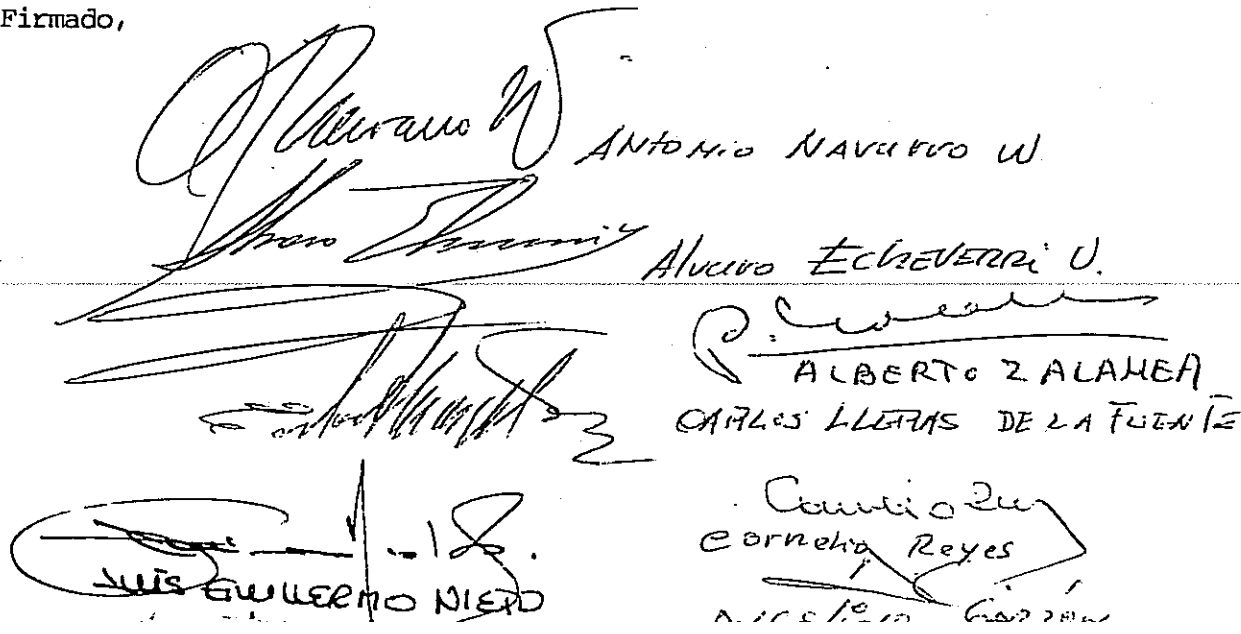 Firmado,
Navarro W
ANTONIO NAVARRO W
Alvaro ECHEVERRI U.
ALBERTO ZALAMEA
CARLOS LLERAS DE LA FUENTE
Cornelio Reyes
LUIS GUILLERMO NIETO
ANGELINO GARZON